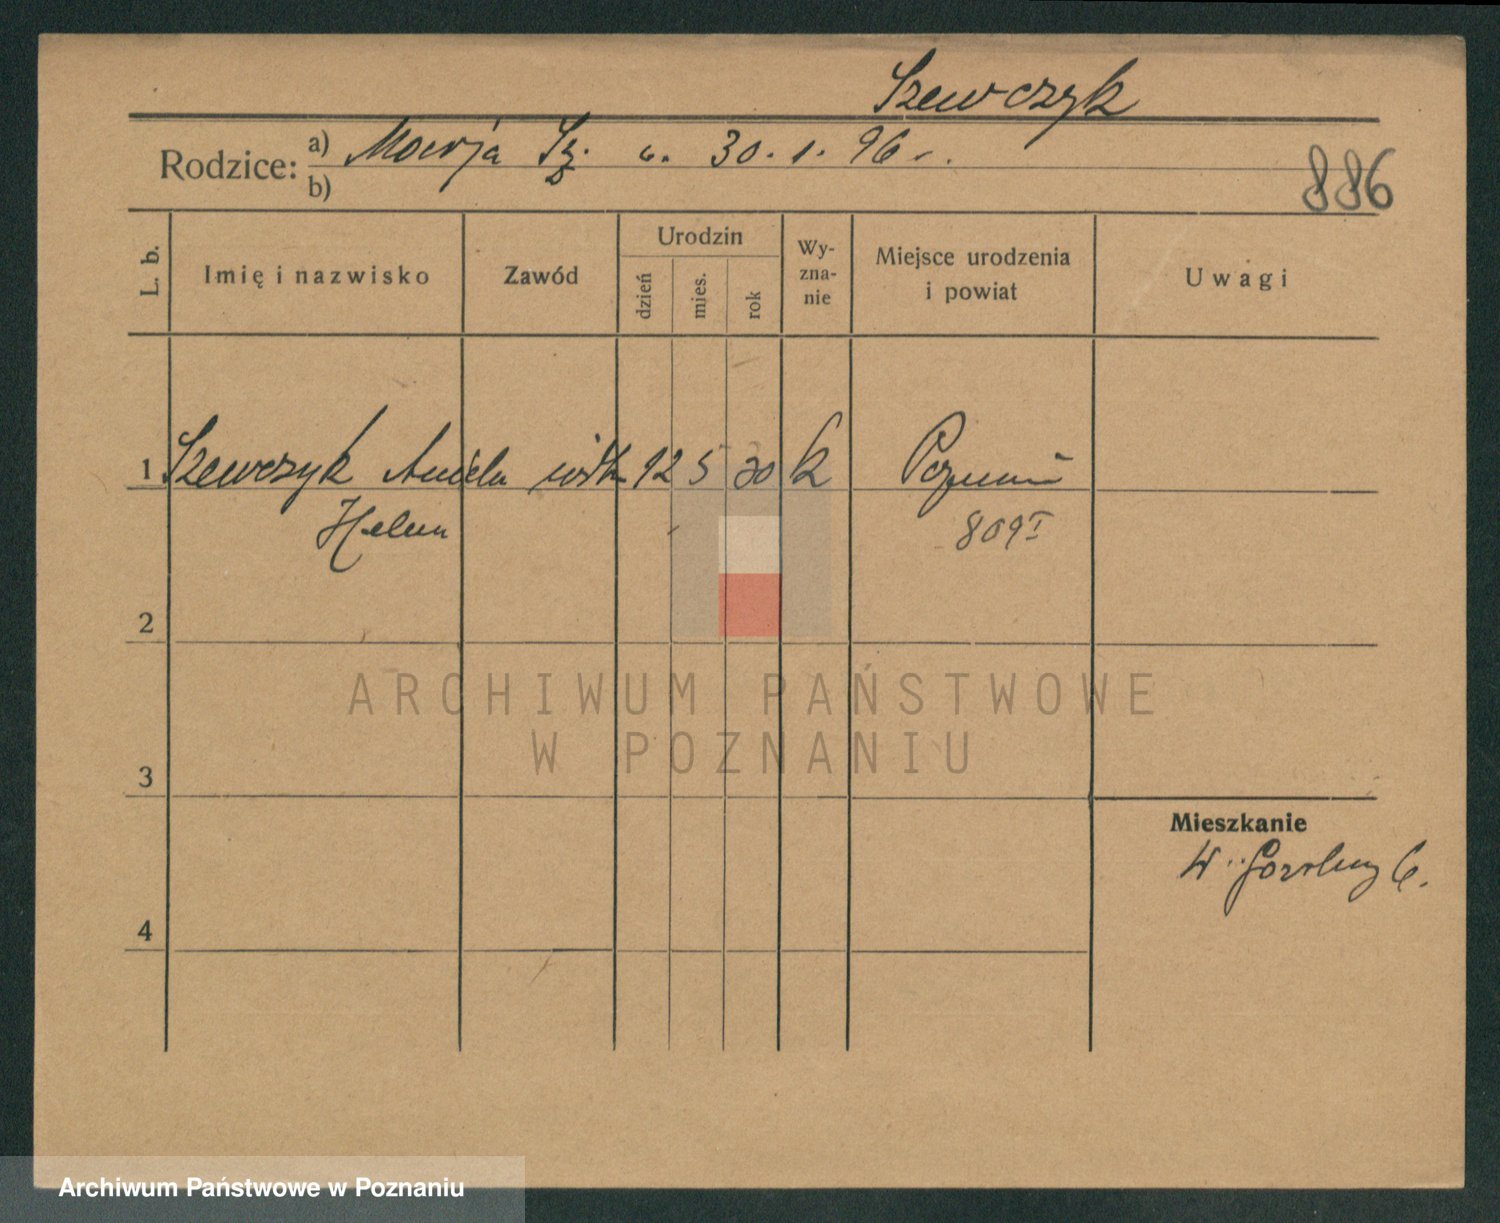 Szewczyk
Rodzice: a) Marja Sz. u. 30. 1. 96 r.
b)
886
L. b. Imię i nazwisko Zawód Urodzin dzień mies. rok Wy-zna-nie Miejsce urodzenia i powiat Uwagi
1 Szewczyk Aniela 12 5 30 k Poznań
Helena 809 I
2
ARCHIWUM PAŃSTWOWE
W POZNANIU
3
Mieszkanie
W.
4
Archiwum Państwowe w Poznaniu